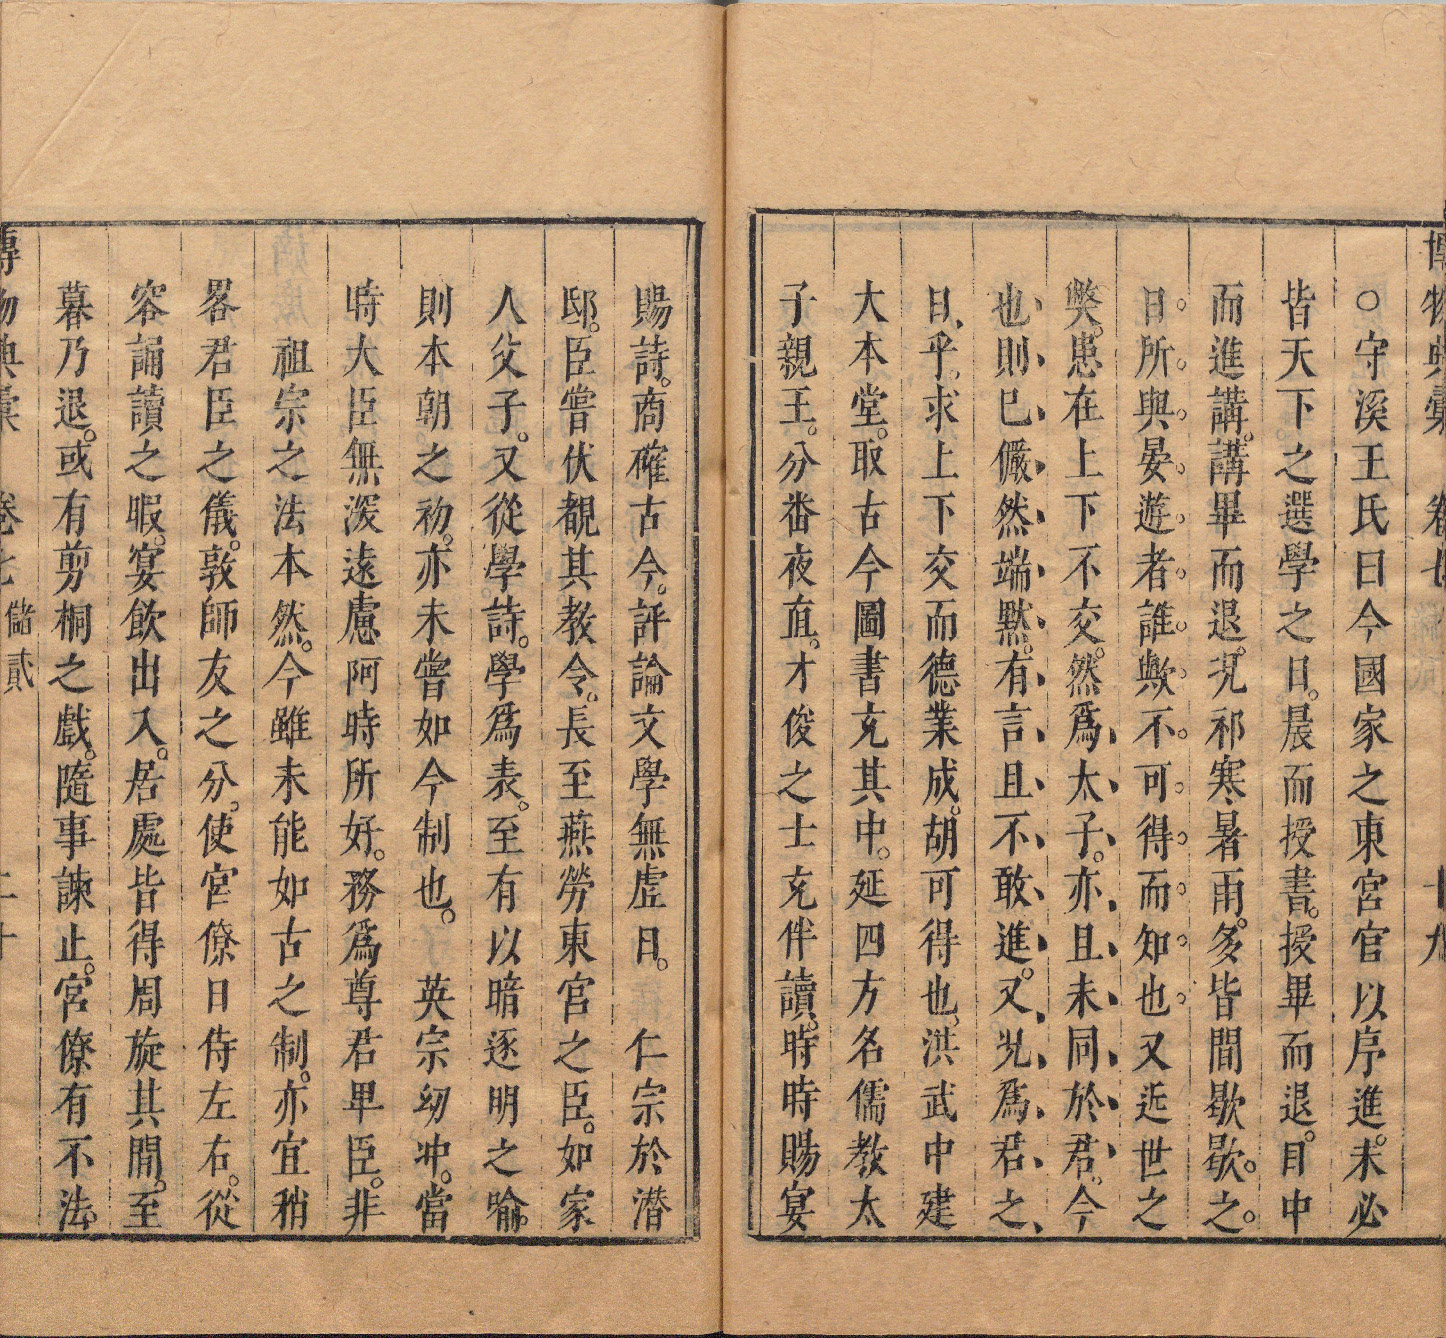 博物典彙 卷七 十九
○守溪王氏曰今國家之東宮官以序進未必
皆天下之選學之日晨而授書授畢而退日中
而進講講畢而退況祁寒暑雨多皆間歇歇之
日所與晏遊者誰歟不可得而知也又近世之
獘患在上下不交然爲太子亦且未同於君今
也則已儼然端默有言且不敢進又況爲君之
日乎求上下交而德業成胡可得也洪武中建
大本堂取古今圖書充其中延四方名儒教太
子親王分畨夜直才俊之士充伴讀時時賜宴
賜詩商確古今評論文學無虛日 仁宗於潜
邸臣嘗伏覩其教令長至燕勞東宮之臣如家
人父子又從學詩學爲表至有以暗逐明之喻
則本朝之初亦未嘗如今制也 英宗幼冲當
時大臣無深遠慮阿時所好務爲尊君卑臣非
祖宗之法本然今雖未能如古之制亦宜稍
畧君臣之儀敦師友之分使宮僚日侍左右從
容誦讀之暇宴飲出入居處皆得周旋其間至
暮乃退或有剪桐之戲隨事諫止宮僚有不法
博物典彙 卷七 儲貳 二十